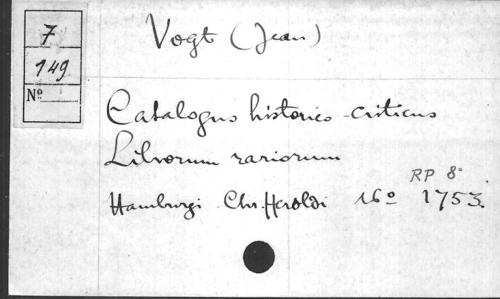 7
149
Nº
Vogt (Jean)
Catalogus historico-criticus
Librorum rariorum
RP 8º
Hamburgi Chr. Heroldi 16º 1753.